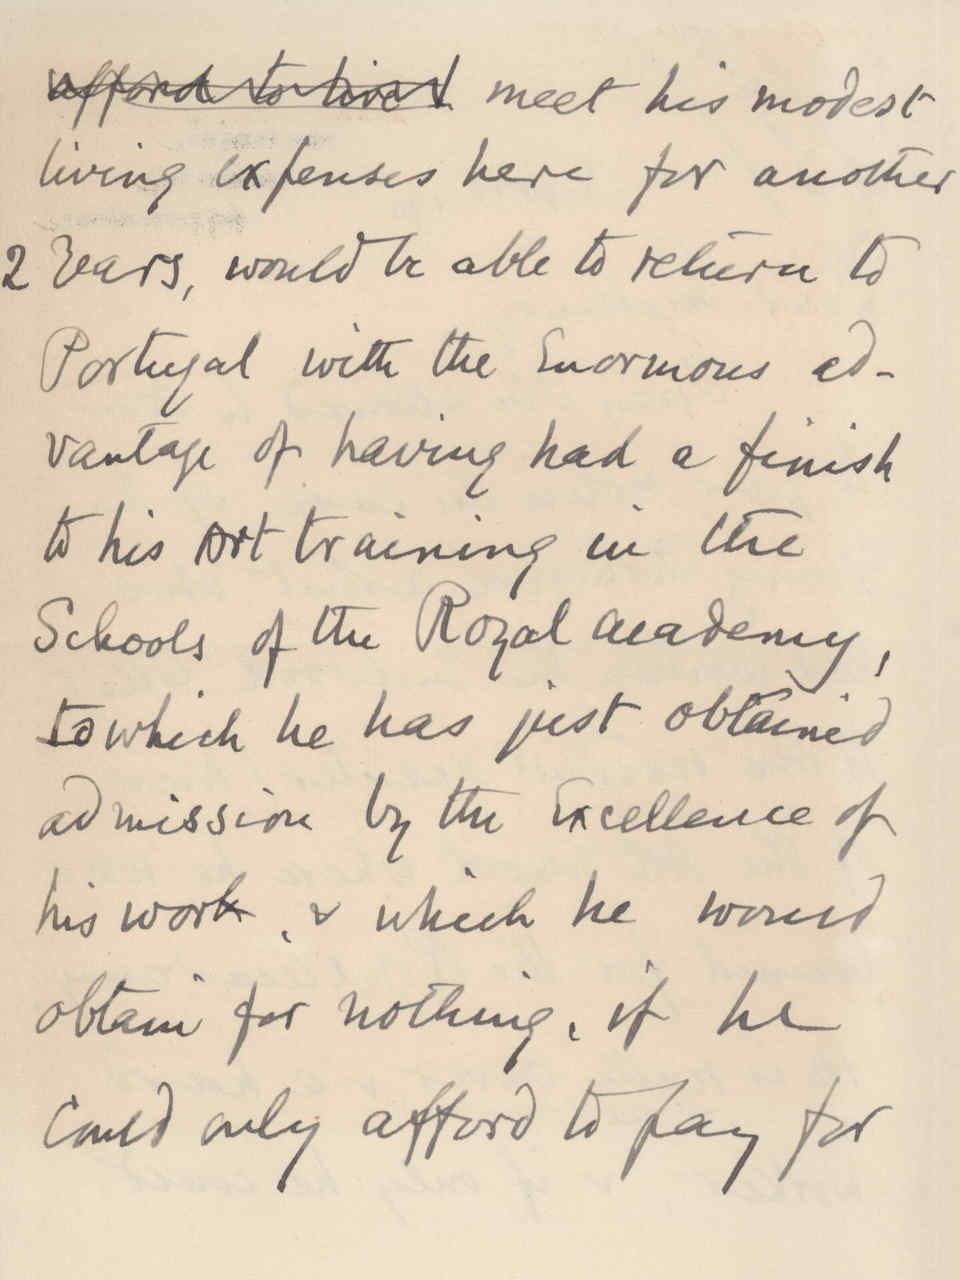 afford to live meet his modest
living expenses here for another
2 Years, would be able to return to
Portugal with the Enormous ad-
vantage of having had a finish
to his Art training in the
Schools of the Royal Academy,
to which he has just obtained
admission by the Excellence of
his work, & which he would
obtain for nothing, if he
Could only afford to pay for